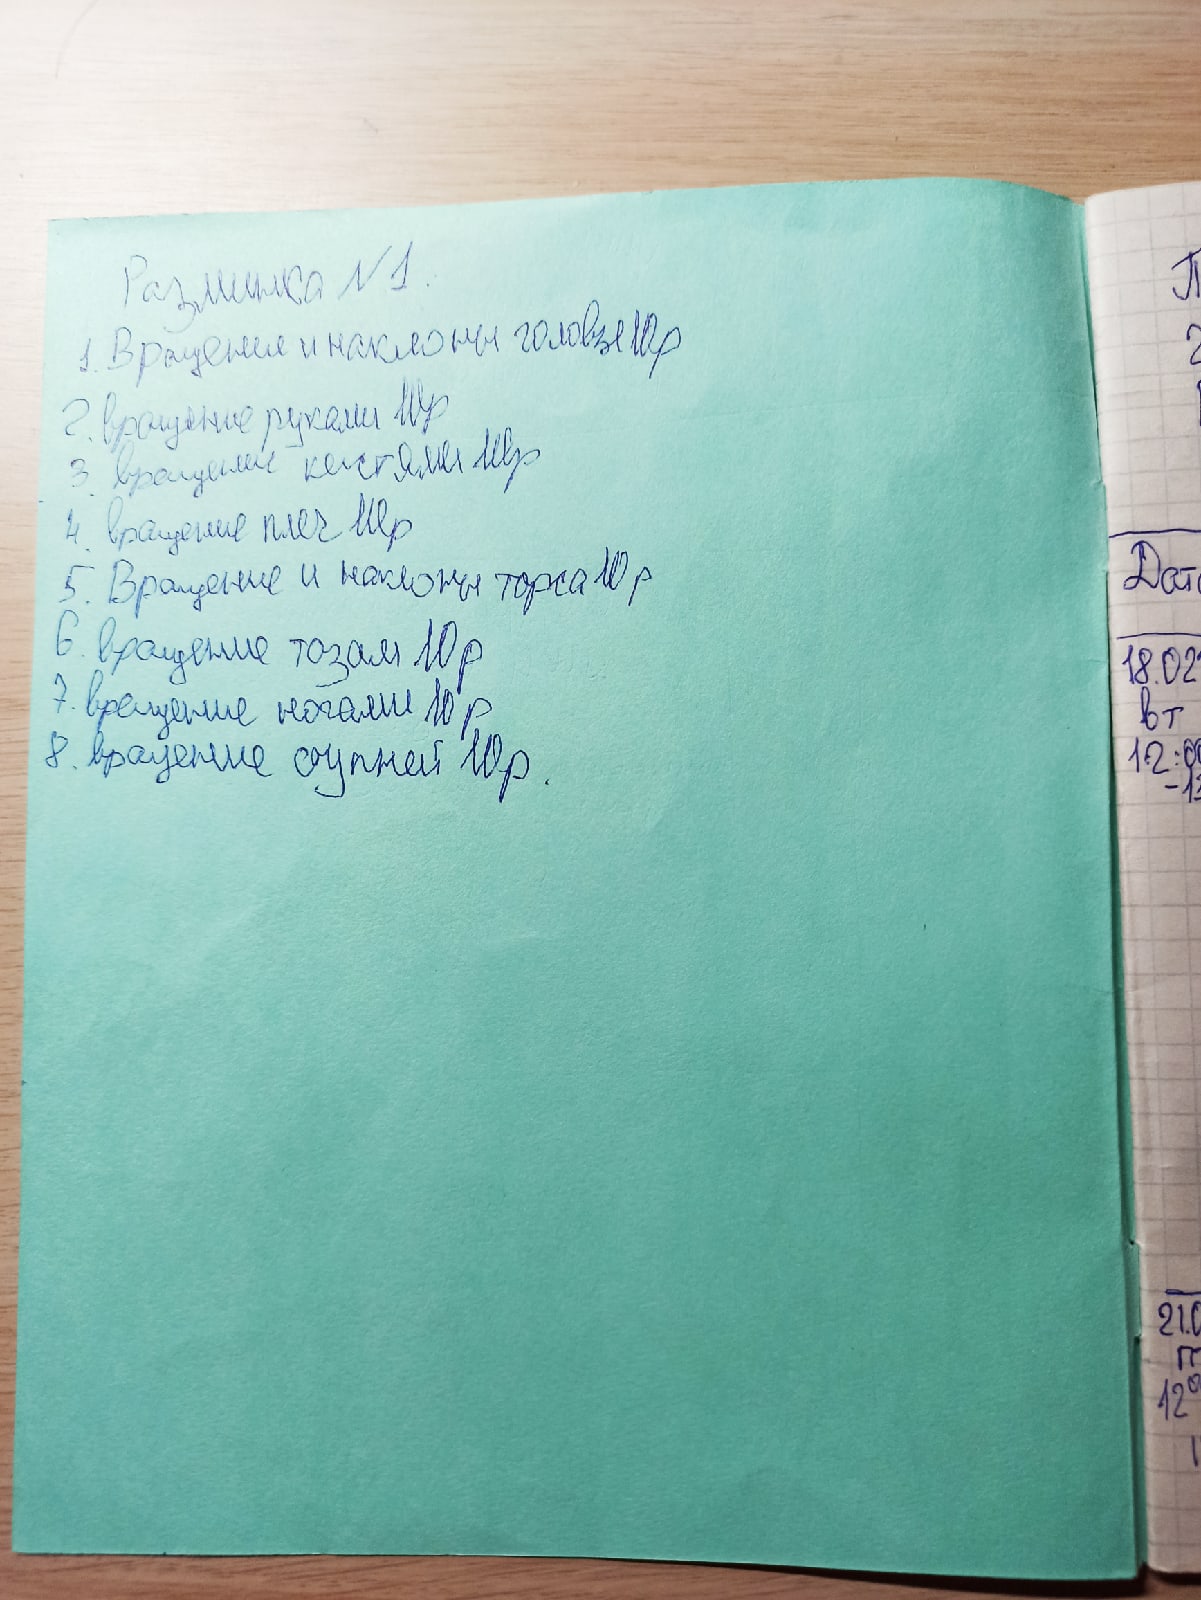 Разминка N1.
1. Вращения и наклоны головы 10р
2. вращение руками 10р
3. вращение кистями 10р
4. вращение плеч 10р
5. Вращение и наклоны торса 10р
6. вращение тазом 10р
7. вращение ногами 10р
8. вращение ступней 10р.
П
2
Дат
18.02
вт
12:00
-13
21.0
пт
12⁰
1